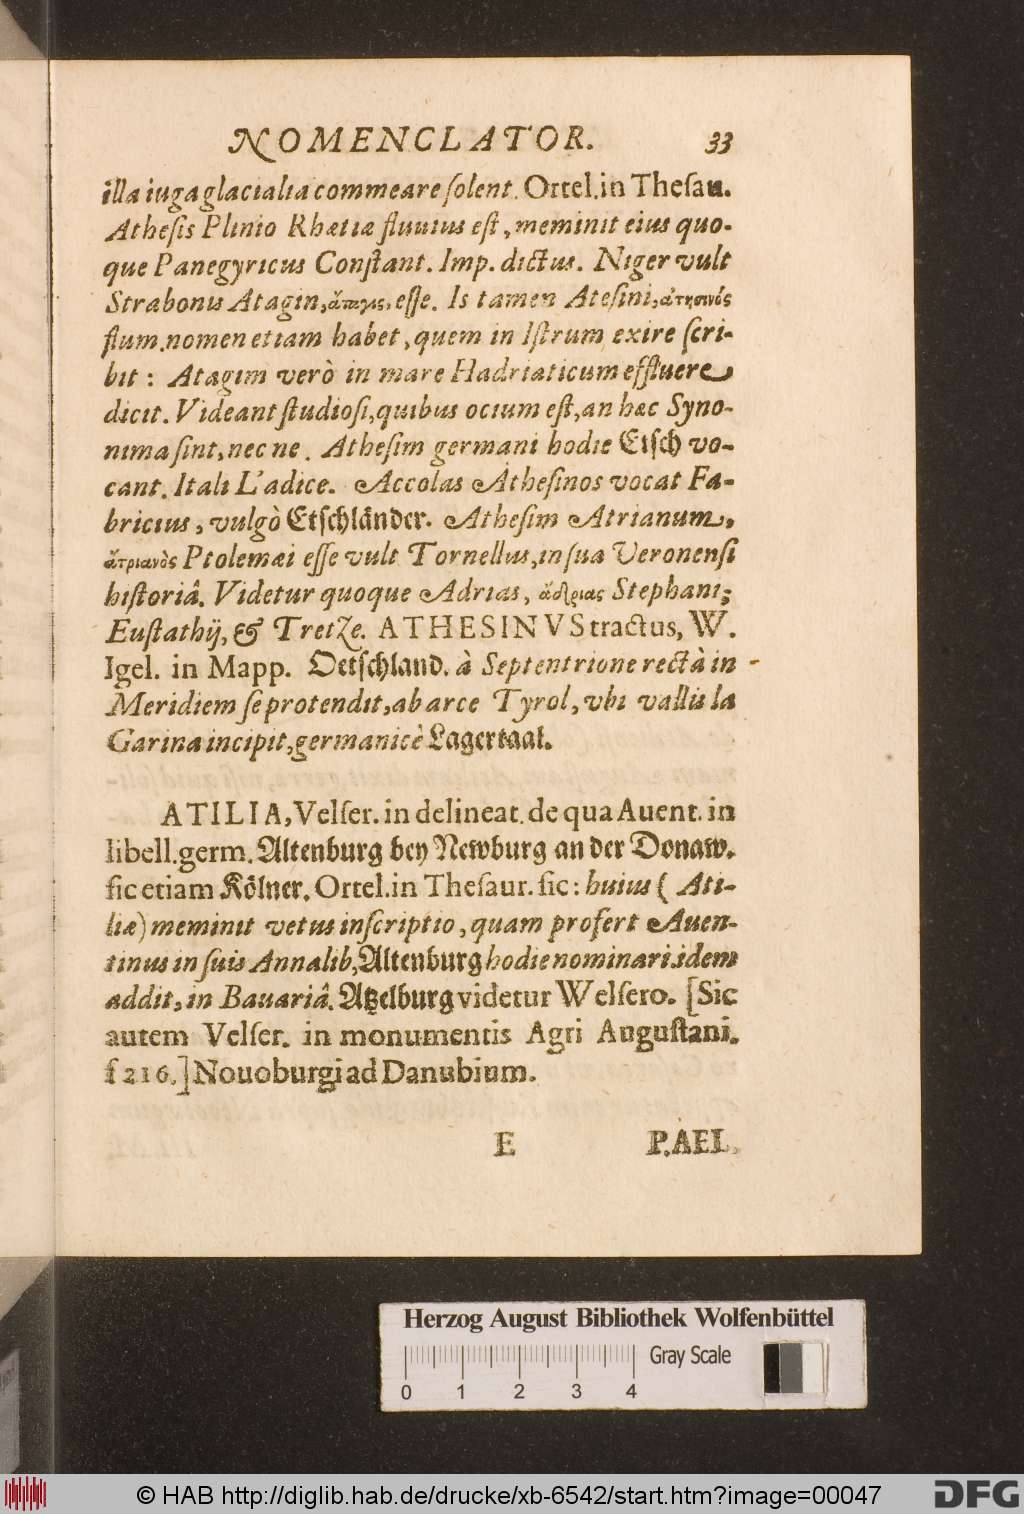 NOMENCLATOR. 33
illa iuga glacialia commeare solent. Ortel. in Thesau.
Athesis Plinio Rhætiæ fluuius est, meminit eius quo-
que Panegyricus Constant. Imp. dictus. Niger vult
Strabonis Atagin, ἄταγις, esse. Is tamen Atesini, ἀτησινὸς
flum. nomen etiam habet, quem in Istrum exire scri-
bit: Atagim verò in mare Hadriaticum effluere
dicit. Videant studiosi, quibus ocium est, an hæc Syno-
nima sint, nec ne. Athesim germani hodie Etsch vo-
cant. Itali L'adice. Accolas Athesinos vocat Fa-
bricius, vulgò Etschländer. Athesim Atrianum,
ἄτριανὸς Ptolemæi esse vult Tornellus, in sua Veronensi
historiâ. Videtur quoque Adrias, ἄδριας Stephani;
Eustathij, & Tretze. ATHESINVS tractus, W.
Igel. in Mapp. Oetschland. à Septentrione rectà in
Meridiem se protendit, ab arce Tyrol, vbi vallis la
Garina incipit, germanicè Lagertaal.
ATILIA, Velser. in delineat. de qua Auent. in
libell. germ. Altenburg bey Newburg an der Donaw.
sic etiam Kölner. Ortel. in Thesaur. sic: huius (Ati-
liæ) meminit vetus inscriptio, quam profert Auen-
tinus in suis Annalib, Altenburg hodie nominari. idem
addit, in Bauariâ. Atzelburg videtur Welsero. [Sic
autem Velser. in monumentis Agri Augustani.
f 216.] Nouoburgi ad Danubium.
E P. AEL.
Herzog August Bibliothek Wolfenbüttel
Gray Scale
0 1 2 3 4
© HAB http://diglib.hab.de/drucke/xb-6542/start.htm?image=00047 DFG